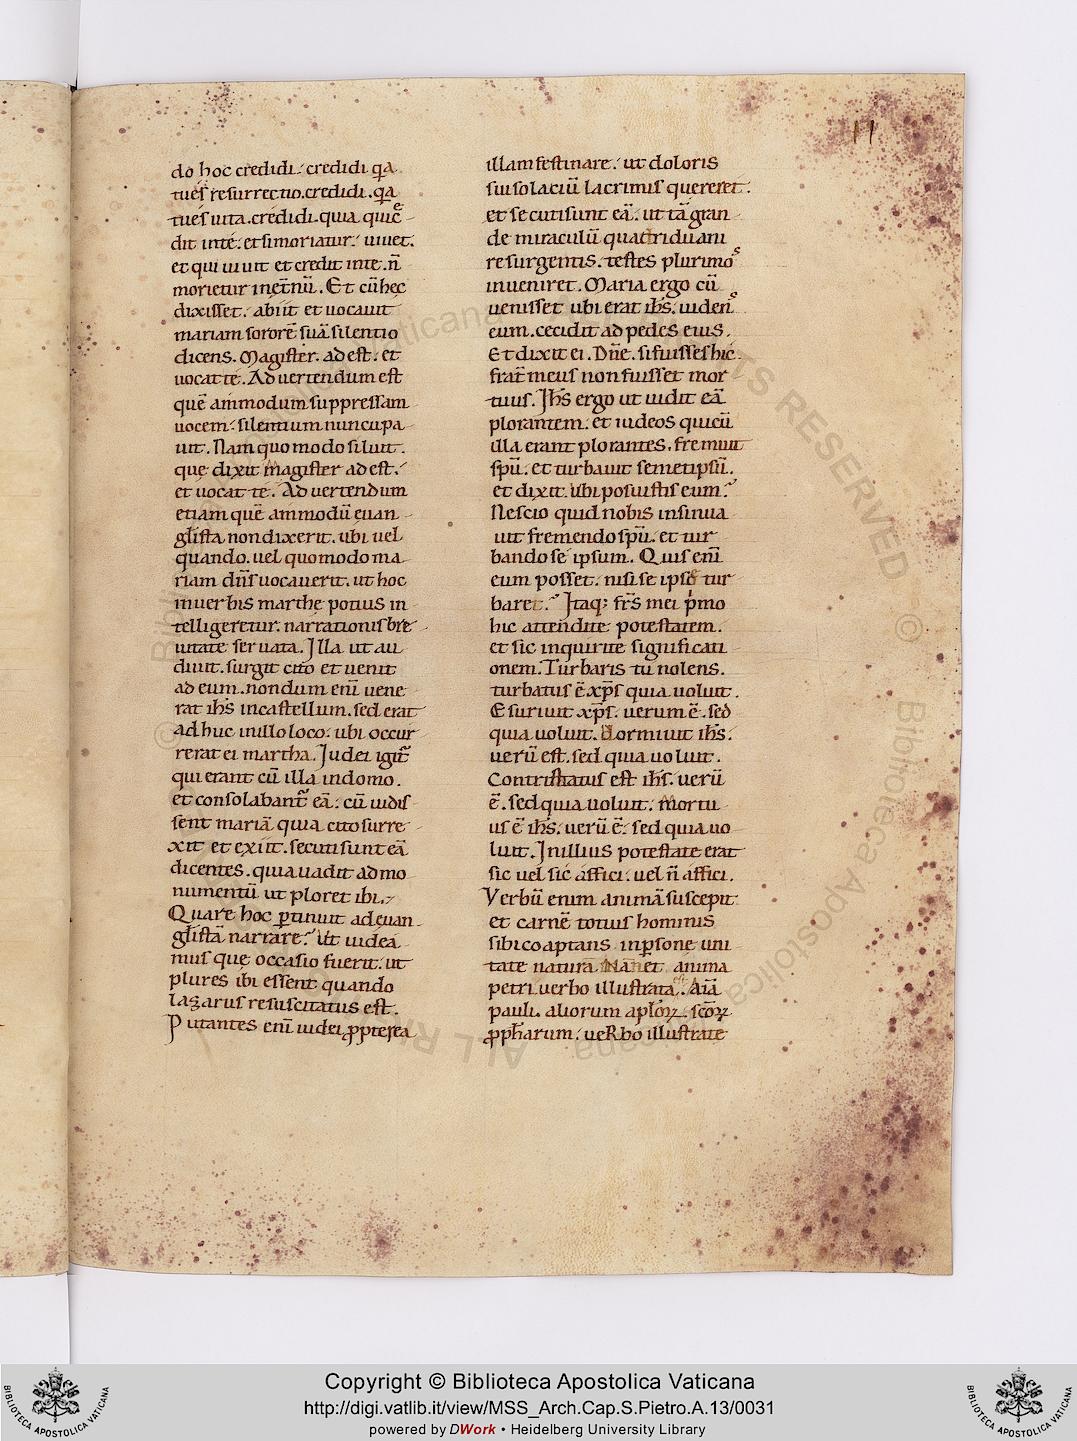 11
do hoc credidi. credidi q̄a
tu es resurrectio. credidi. q̄a
tu es uita. credidi. quia quicre
dit in te. et si moriatur. uiuet.
et qui uiuit et credit in te. n̄
morietur in et̄nū. Et cū hęc
dixisset. abiit et uocauit
mariam sororē suā silentio
dicens. Magister. adest. et
uocat te. Aduertendum est
quē ammodum suppressam
uocem. silentium nuncupa
uit. Nam quomodo siluit.
quę dixit magister adest.
et uocat te. Aduertendum
etiam quē ammodū euan
glista non dixerit. ubi uel
quando. uel quomodo ma
riam dn̄s uocauerit. ut hoc
in uerbis marthę potius in
telligeretur. narrationis bre
uitate seruata. Illa ut au
diuit. surgit cito et uenit
ad eum. nondum enī uene
rat ih̄s in castellum. sed erat
adhuc in illo loco. ubi occur
rerat ei martha. Iudei igit̄
qui erant cū illa in domo.
et consolabant̄ eā. cū uidis
sent mariā quia cito surre
xit et exiit. secuti sunt eā
dicentes. quia uadit ad mo
numentū ut ploret ibi.
Quare hoc ꝑtinuit ad euan
glistā narrare? Ut uidea
mus que occasio fuerit. ut
plures ibi essent quando
lazarus resuscitatus est.
Putantes enī iudei ꝓpterea
illam festinare. ut doloris
sui solaciū lacrimis quereret.
et secuti sunt eā. ut tā gran
de miraculū quatriduani
resurgentis. testes plurimos
inueniret. Maria ergo cū
uenisset ubi erat ih̄s. uidens
eum. cecidit ad pedes eius.
Et dixit ei. Dn̄e. si fuisses hic
frat̄ meus non fuisset mor
tuus. Ih̄s ergo ut uidit eā
plorantem. et iudeos qui cū
illa erant plorantes. fremuit
spū. et turbauit semetipsū.
et dixit. Ubi posuistis eum?
Nescio quid nobis insinua
uit fremendo spū. et tur
bando se ipsum. Quis enī
eum posset. nisi se ipse tur
baret? Itaq; frs̄ mei pⁱmo
hic attendite potestatem.
et sic inquirite significati
onem. Turbaris tu nolens.
turbatus ē xp̄s quia uoluit.
Esuriuit xp̄s. uerum ē. sed
quia uoluit. Dormiuit ih̄s.
uerū est. sed quia uoluit.
Contristatus est ih̄s. uerū
ē. sed quia uoluit. Mortu
us ē ih̄s. uerū ē. sed quia uo
luit. In illius potestate erat
sic uel sic affici. uel n̄ affici.
Verbū enim animā suscepit
et carnē totius hominis
sibi coaptans in ꝑsone uni
tate naturā. Nā et anima
petri uerbo illustrata. Aīa
pauli. aliorum apl̄oꝝ. sc̄oꝝ
ꝓph̄arum. ueRbo illustrate
Copyright © Biblioteca Apostolica Vaticana
http://digi.vatlib.it/view/MSS_Arch.Cap.S.Pietro.A.13/0031
powered by DWork • Heidelberg University Library
BIBLIOTECA APOSTOLICA VATICANA
BIBLIOTECA APOSTOLICA VATICANA
© Biblioteca Apostolica Vaticana ALL RIGHTS RESERVED